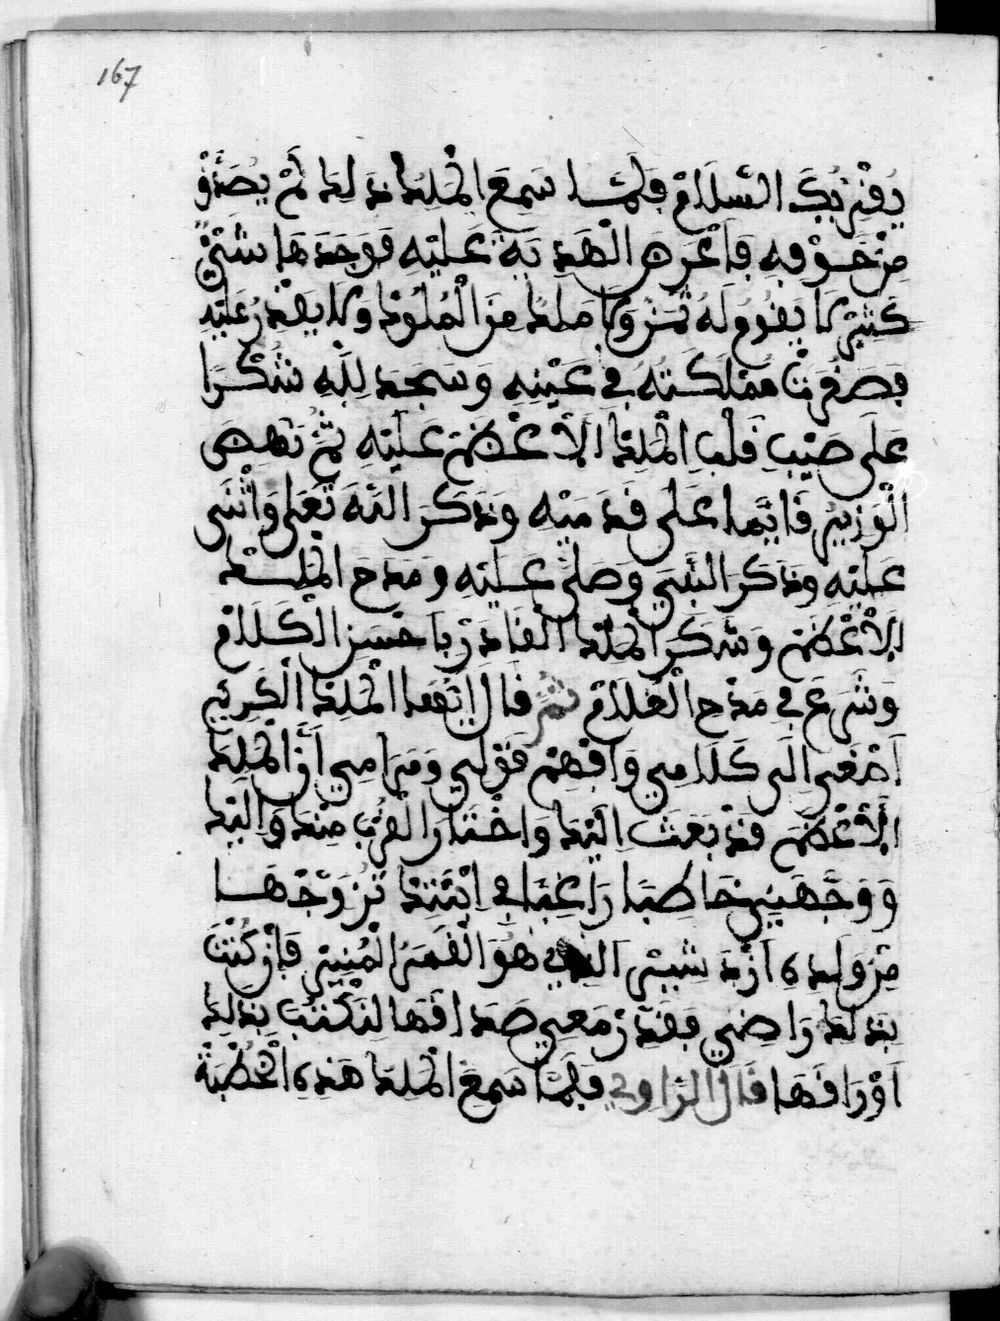 167
يُقْرِيُكَ السَّلَامْ فَلَمَّا سَمِعَ الْمَلِكْ ذَلِكَ لَمْ يُصَدَّقْ
مِنْ خَوْفِهِ فَاعْرَضَ الْهَدِيَةَ عَلَيْهِ فَوَجَدَهَا شَيْئٌ
كَثِيرْ لَا يَقُومُ لَهُ ثَمَنْ وَلَا مَلِكْ مِنَ الْمُلُوكْ وَلَا يَقْدَرُ عَلَيْهِ
فَصَغُرَتْ مَمْلَكَتُهُ فِي عَيْنِهِ وَسَجَدَ لِلَّهِ شُكْرَا
عَلَى حَنِيبِ قَلْبِ الْمَلِكْ الْأَعْظَمْ عَلَيْهِ ثُمَّ نَهَضَ
الْوَزِيرْ قَايِمًا عَلَى قَدَمَيْهِ وَذَكَرَ اللَّهَ تَعَلَى وَاثْنَى
عَلَيْهِ وَذَكَرَ النَّبِي وَصَلَّى عَلَيْهِ وَمَدَحَ الْمَلِكْ
الْأَعْظَمْ وَشَكَرَ الْمَلِكْ الْقَادَرْ بِاحْسَنِ الْكَلَامْ
وَشَرَعَ فِي مَدْحِ الْغُلَامْ ثُمَّ قَالَ ايُّهَا الْمَلِكْ الْكَرِيمْ
اَصْغِي الَى كَلَامِي وَافْهَمْ قَوْلِي وَمَرَامِي أَنَّ الْمَلِكْ
الْأَعْظَمْ قَدْ بَعَثَ الَيْكَ وَاخْتَارَ الْقُرْبَ مِنْكَ وَالَيْكَ
وَوَجَّهَنِي خَاطِبَا رَاغِبًا فِي ابْنَتِكْ تُزَوِّجْهَا
مِنْ وَلَدِهِ ازْدَشِيرْ الذِي هُوَ الْقَمَرُ الْمُنِيرْ فَإِنْ كُنْتَ
بِذَلِكَ رَاضِي فَقَدِّرْ مَعِي صَدَاقَهَا لِنَكْتُبْ بِذَلِكَ
اَوْرَاقَهَا قَالَ الرَّاوِي فَلَمَّا سَمِعَ الْمَلِكْ هَذِهِ الْخُطْبَةْ